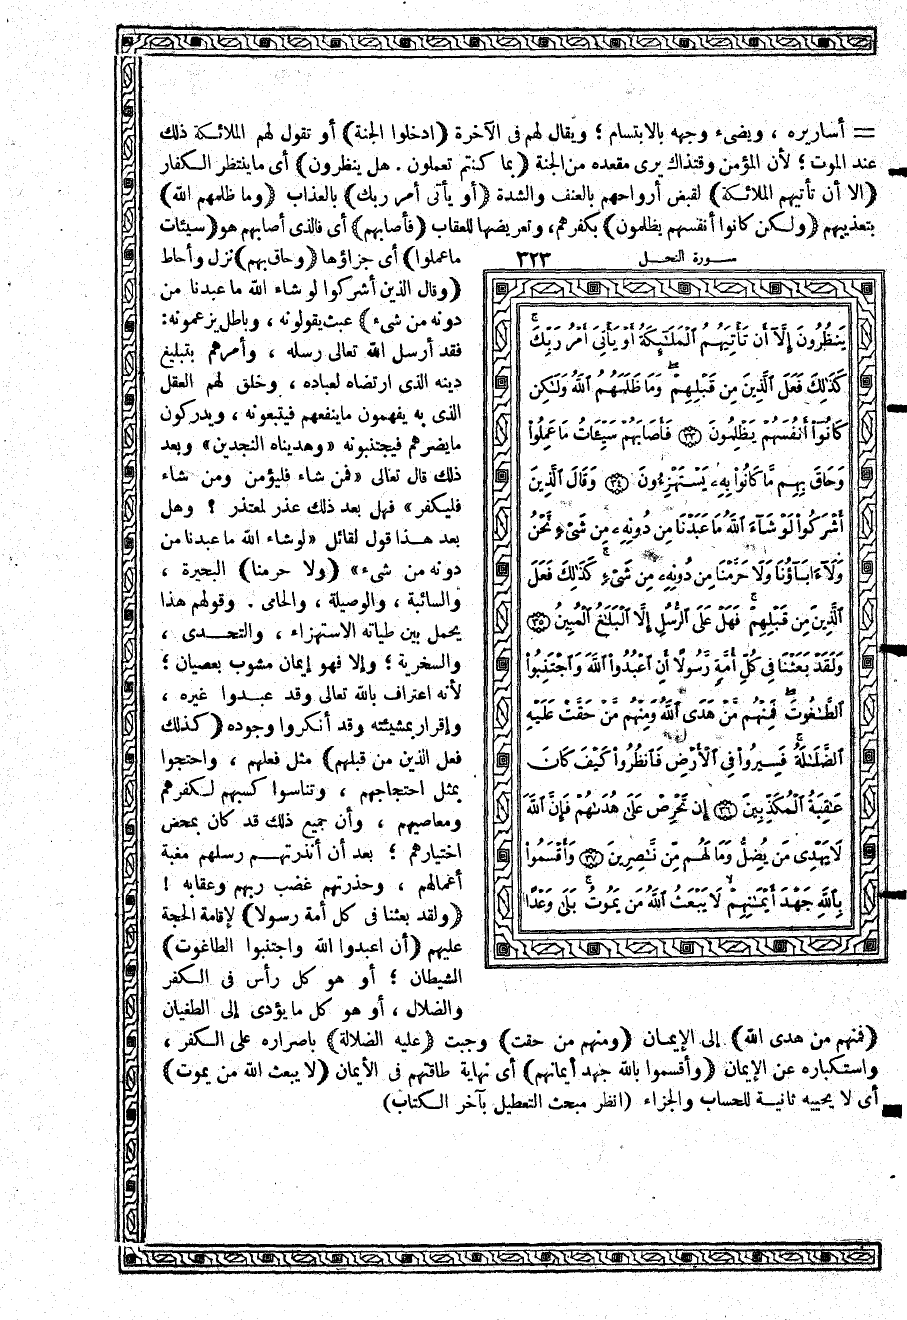 = أساريره ، ويضىء وجهه بالابتسام ؛ ويقال لهم فى الآخرة (ادخلوا الجنة) أو تقول لهم الملائكة ذلك
عند الموت ؛ لأن المؤمن وقتذاك يرى مقعده من الجنة (بما كنتم تعملون . هل ينظرون) أى ما ينتظر الكفار
(الا أن تأتيهم الملائكة) لقبض أرواحهم بالعنف والشدة (أو يأتى أمر ربك) بالعذاب (وما ظلمهم الله)
بتعذيبهم (ولكن كانوا أنفسهم يظلمون) بكفرهم، وتعريضها للعقاب (فأصابهم) أى فالذى أصابهم هو (سيئات
ما عملوا) أى جزاؤها (وحاق بهم) نزل وأحاط
(وقال الذين أشركوا لو شاء الله ما عبدنا من
دونه من شىء) عبث يقولونه ، وباطل يزعمونه:
فقد أرسل الله تعالى رسله ، وأمرهم بتبليغ
دينه الذى ارتضاه لعباده ، وخلق لهم العقل
الذى به يفهمون ما ينفعهم فيتبعونه ، ويدركون
ما يضرهم فيجتنبونه «وهديناه النجدين» وبعد
ذلك قال تعالى «فمن شاء فليؤمن ومن شاء
فليكفر» فهل بعد ذلك عذر لمعتذر ؟ وهل
بعد هذا قول لقائل «لو شاء الله ما عبدنا من
دونه من شىء» (ولا حرمنا) البحيرة ،
والسائبة ، والوصيلة ، والحامى . وقولهم هذا
يحمل بين طياته الاستهزاء ، والتحدى ،
والسخرية ؛ وإلا فهو إيمان مشوب بعصيان ؛
لأنه اعتراف بالله تعالى وقد عبدوا غيره ،
وإقرار بمشيئته وقد أنكروا وجوده (كذلك
فعل الذين من قبلهم) مثل فعلهم ، واحتجوا
بمثل احتجاجهم ، وتناسوا كسبهم لكفرهم
ومعاصيهم ، وأن جميع ذلك قد كان بمحض
اختيارهم ؛ بعد أن أنذرتهم رسلهم مغبة
أعمالهم ، وحذرتهم غضب ربهم وعقابه !
(ولقد بعثنا فى كل أمة رسولا) لإقامة الحجة
عليهم (أن اعبدوا الله واجتنبوا الطاغوت)
الشيطان ؛ أو هو كل رأس فى الكفر
والضلال ، أو هو كل ما يؤدى إلى الطغيان
سورة النحل ٣٢٣
يَنظُرُونَ إِلَّآ أَن تَأْتِيَهُمُ ٱلْمَلَـٰٓئِكَةُ أَوْ يَأْتِىَ أَمْرُ رَبِّكَ ۚ
كَذَٰلِكَ فَعَلَ ٱلَّذِينَ مِن قَبْلِهِمْ ۚ وَمَا ظَلَمَهُمُ ٱللَّهُ وَلَـٰكِن
كَانُوٓا۟ أَنفُسَهُمْ يَظْلِمُونَ ﴿٣٣﴾ فَأَصَابَهُمْ سَيِّـَٔاتُ مَا عَمِلُوا۟
وَحَاقَ بِهِم مَّا كَانُوا۟ بِهِۦ يَسْتَهْزِءُونَ ﴿٣٤﴾ وَقَالَ ٱلَّذِينَ
أَشْرَكُوا۟ لَوْ شَآءَ ٱللَّهُ مَا عَبَدْنَا مِن دُونِهِۦ مِن شَىْءٍ نَّحْنُ
وَلَآ ءَابَآؤُنَا وَلَا حَرَّمْنَا مِن دُونِهِۦ مِن شَىْءٍ ۚ كَذَٰلِكَ فَعَلَ
ٱلَّذِينَ مِن قَبْلِهِمْ ۚ فَهَلْ عَلَى ٱلرُّسُلِ إِلَّا ٱلْبَلَـٰغُ ٱلْمُبِينُ ﴿٣٥﴾
وَلَقَدْ بَعَثْنَا فِى كُلِّ أُمَّةٍ رَّسُولًا أَنِ ٱعْبُدُوا۟ ٱللَّهَ وَٱجْتَنِبُوا۟
ٱلطَّـٰغُوتَ ۖ فَمِنْهُم مَّنْ هَدَى ٱللَّهُ وَمِنْهُم مَّنْ حَقَّتْ عَلَيْهِ
ٱلضَّلَـٰلَةُ ۚ فَسِيرُوا۟ فِى ٱلْأَرْضِ فَٱنظُرُوا۟ كَيْفَ كَانَ
عَـٰقِبَةُ ٱلْمُكَذِّبِينَ ﴿٣٦﴾ إِن تَحْرِصْ عَلَىٰ هُدَىٰهُمْ فَإِنَّ ٱللَّهَ
لَا يَهْدِى مَن يُضِلُّ ۖ وَمَا لَهُم مِّن نَّـٰصِرِينَ ﴿٣٧﴾ وَأَقْسَمُوا۟
بِٱللَّهِ جَهْدَ أَيْمَـٰنِهِمْ ۙ لَا يَبْعَثُ ٱللَّهُ مَن يَمُوتُ ۚ بَلَىٰ وَعْدًا
(فمنهم من هدى الله) إلى الإيمان (ومنهم من حقت) وجبت (عليه الضلالة) باصراره على الكفر ،
واستكباره عن الإيمان (وأقسموا بالله جهد أيمانهم) أى نهاية طاقتهم فى الأيمان (لا يبعث الله من يموت)
أى لا يحييه ثانية للحساب والجزاء (انظر مبحث التعطيل بآخر الكتاب)